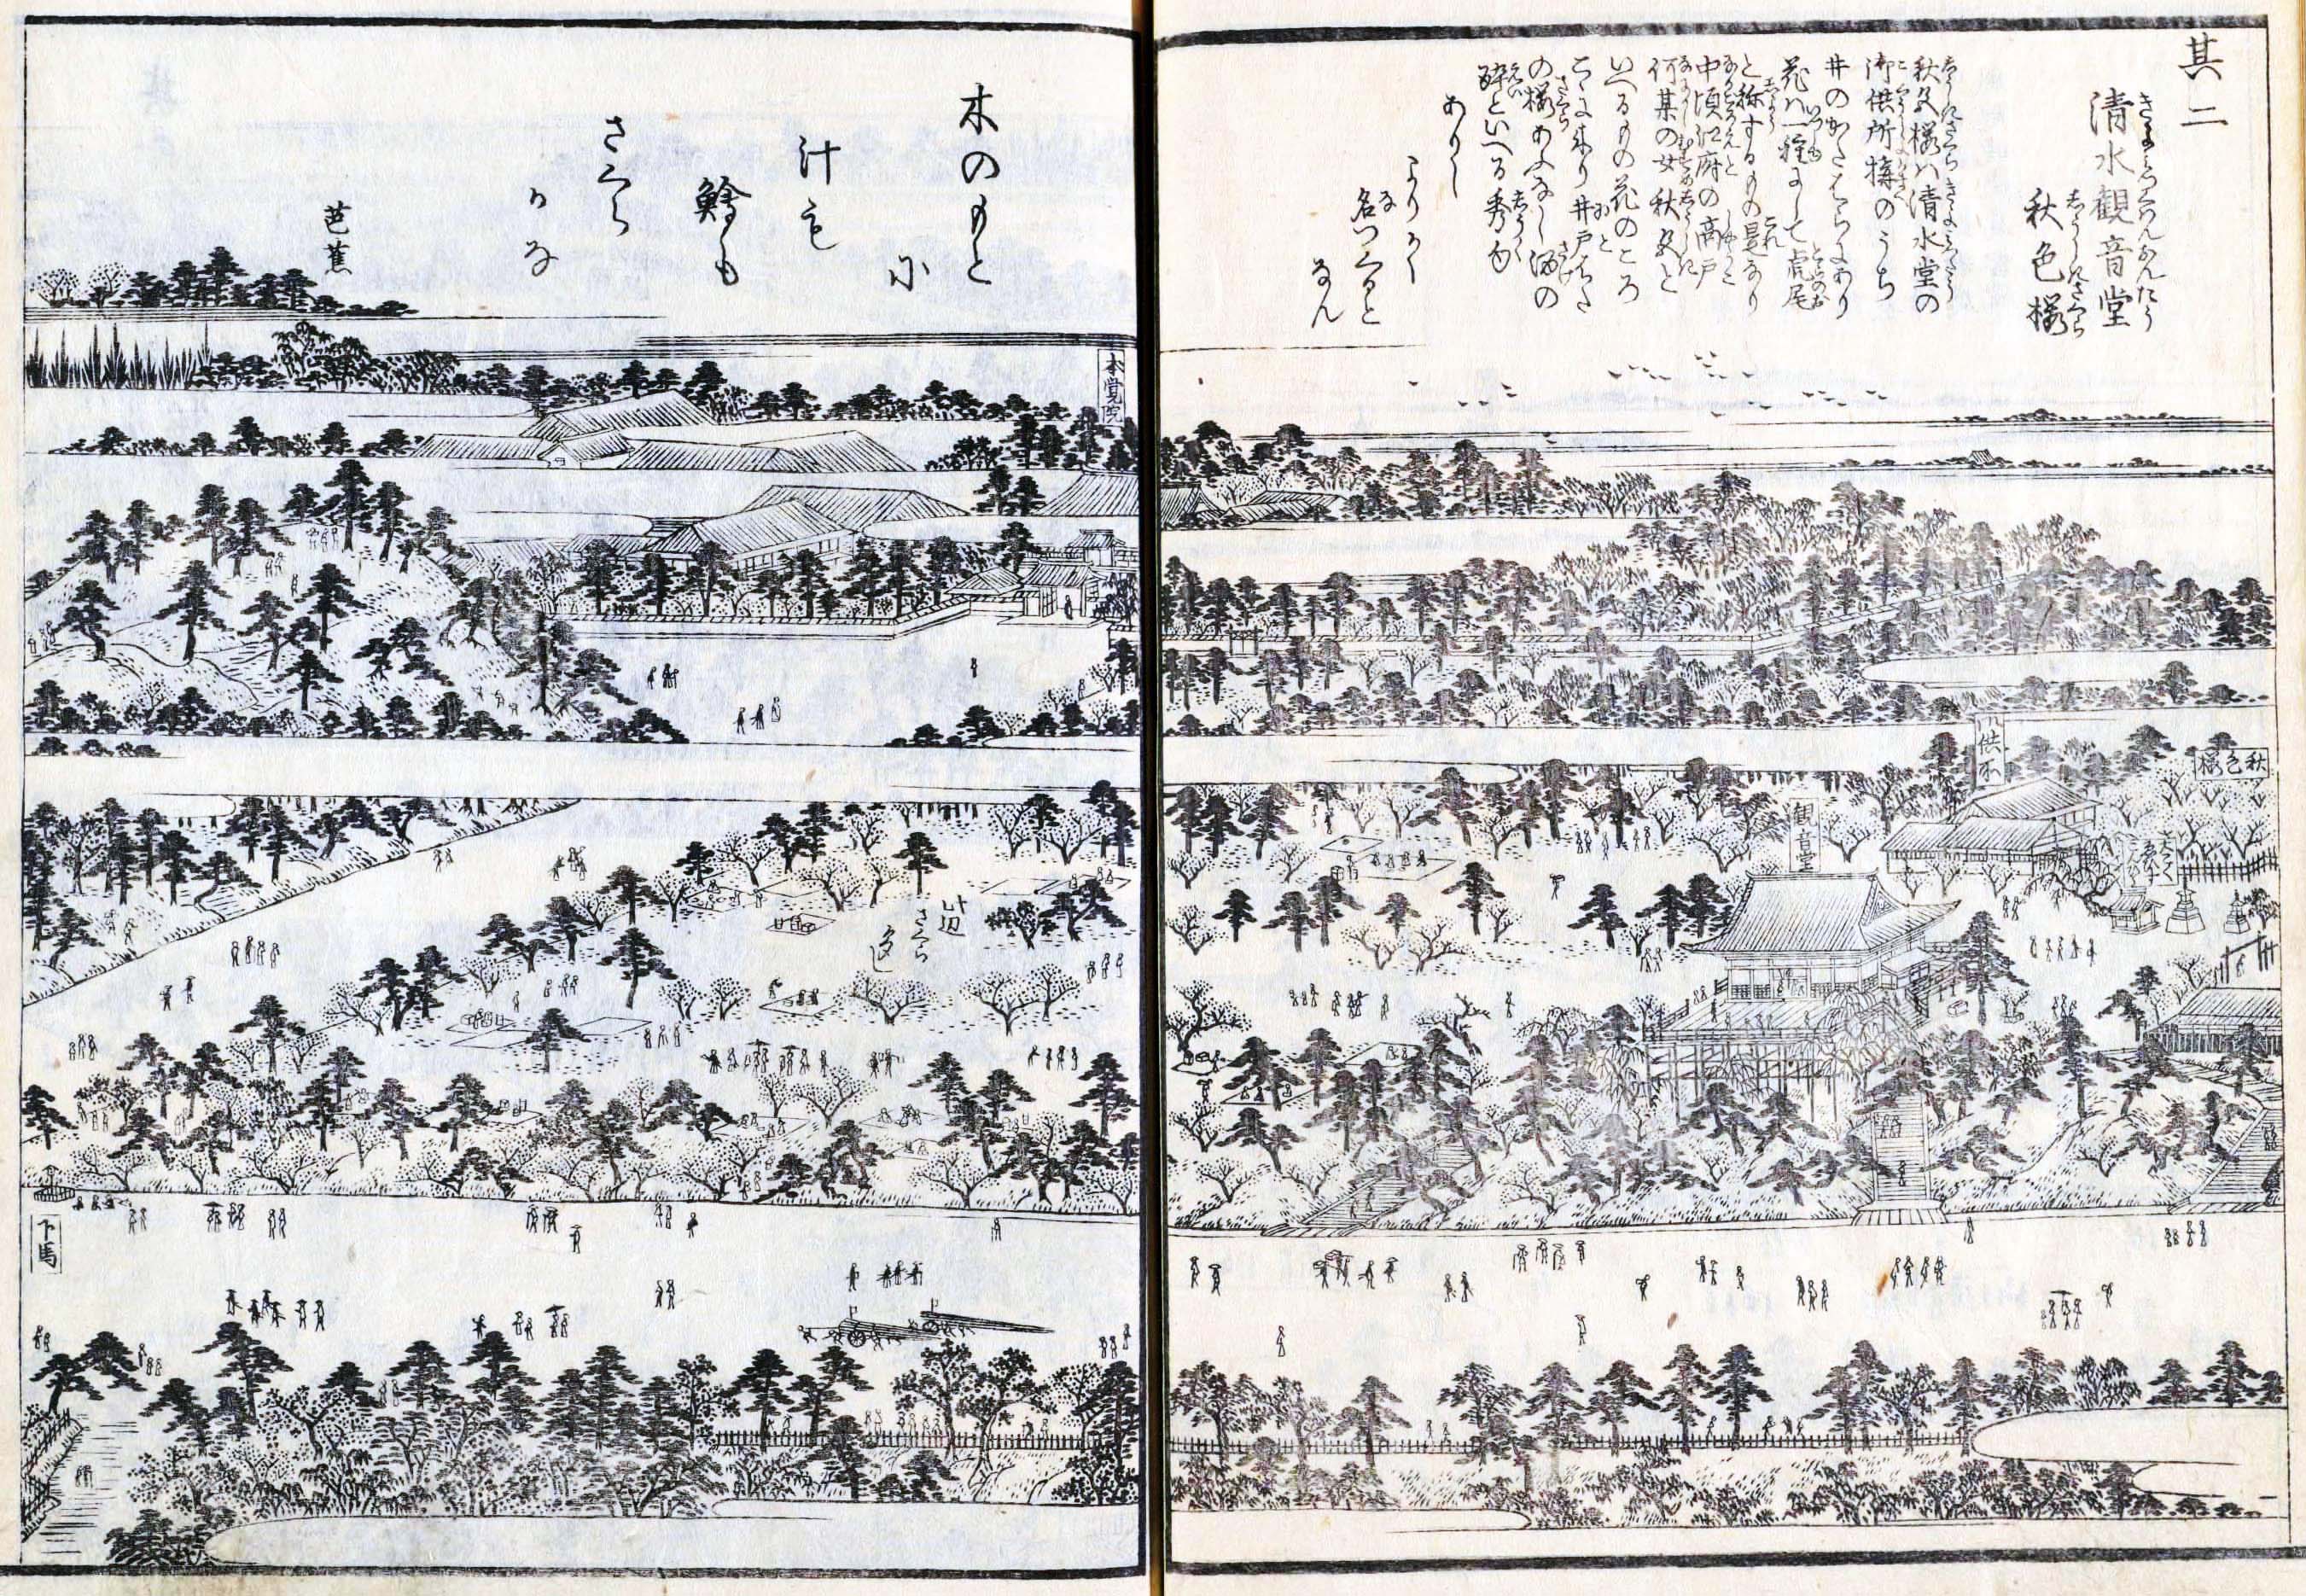 其二
清水観音堂
秋色桜
秋色桜ハ清水堂の
御供所構のうち
井のかたはらにあり
花ハ一種にして虎尾
と称するもの是なり
中頃江府の商戸
何某の女秋色と
いへるもの花のころ
こゝに来り井戸はた
の桜あふなし酒の
酔といへる秀句
ありし
よりかく
名つくると
なん
秋色桜
供所
観音堂
木のもと
に
汁も
鱠も
さくら
かな
芭蕉
本覚院
此辺
さくら
多し
下馬